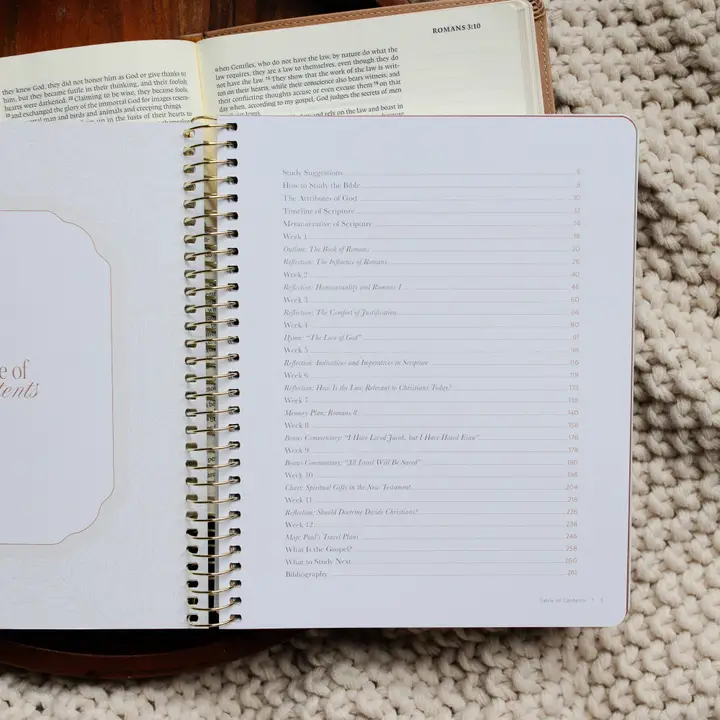 ROMANS 3:10
they knew God, they did not honor him as God or give thanks to
him, but they became futile in their thinking, and their foolish
hearts were darkened. 22 Claiming to be wise, they became fools,
23 and exchanged the glory of the immortal God for images resem-
man and birds and animals and creeping things.
in the lusts of their hearts to
when Gentiles, who do not have the law, by nature do what the
law requires, they are a law to themselves, even though they do
not have the law. 15 They show that the work of the law is writ-
ten on their hearts, while their conscience also bears witness, and
their conflicting thoughts accuse or even excuse them 16 on that
day when, according to my gospel, God judges the secrets of men
and rely on the law and boast in
e of
tents
Study Suggestions 6
How to Study the Bible 8
The Attributes of God 10
Timeline of Scripture 12
Metanarrative of Scripture 14
Week 1 18
Outline: The Book of Romans 20
Reflection: The Influence of Romans 26
Week 2 40
Reflection: Homosexuality and Romans 1 46
Week 3 60
Reflection: The Comfort of Justification
Week 4 80
Hymn: "The Love of God"
Week 5
Reflection: Indicatives and Imperatives in Scripture 116
Week 6 118
Reflection: How Is the Law Relevant to Christians Today?
Week 7
Memory Plan: Romans 8 140
Week 8
Bonus Commentary: "I Have Loved Jacob, but I Have Hated Esau" 176
Week 9 178
Bonus Commentary: "All Israel Will Be Saved"
Week 10 198
Chart: Spiritual Gifts in the New Testament 204
Week 11 218
Reflection: Should Doctrine Divide Christians? 226
Week 12 238
Map: Paul's Travel Plans 246
What Is the Gospel? 258
What to Study Next 260
Bibliography 261
Table of Contents